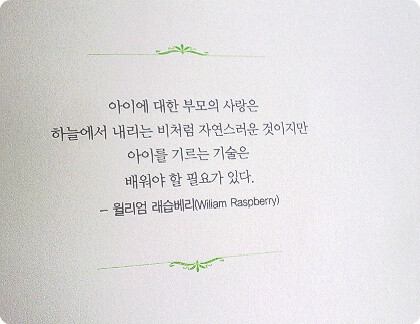 아이에 대한 부모의 사랑은
하늘에서 내리는 비처럼 자연스러운 것이지만
아이를 기르는 기술은
배워야 할 필요가 있다.
– 윌리엄 래습베리(Wiliam Raspberry)